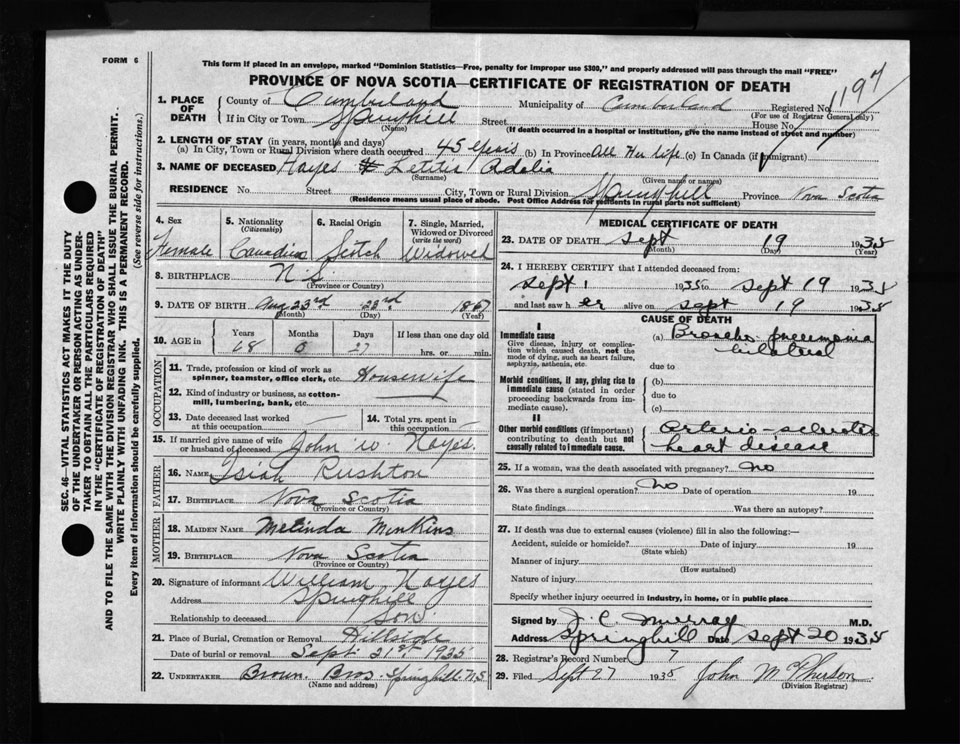 FORM 6
This form if placed in an envelope, marked "Dominion Statistics—Free, penalty for improper use $300," and properly addressed will pass through the mail "FREE"
PROVINCE OF NOVA SCOTIA—CERTIFICATE OF REGISTRATION OF DEATH
SEC. 46—VITAL STATISTICS ACT MAKES IT THE DUTY
OF THE UNDERTAKER OR PERSON ACTING AS UNDER-
TAKER TO OBTAIN ALL THE PARTICULARS REQUIRED
IN THE "CERTIFICATE OF REGISTRATION OF DEATH"
AND TO FILE THE SAME WITH THE DIVISION REGISTRAR WHO SHALL ISSUE THE BURIAL PERMIT.
WRITE PLAINLY WITH UNFADING INK. THIS IS A PERMANENT RECORD.
Every item of information should be carefully supplied. (See reverse side for instructions.)
1. PLACE OF DEATH County of Cumberland Municipality of Cumberland Registered No. 1197
(For use of Registrar General only)
If in City or Town Springhill Street House No.
(Name) (If death occurred in a hospital or institution, give the name instead of street and number)
2. LENGTH OF STAY (in years, months and days)
(a) In City, Town or Rural Division where death occurred 45 years (b) In Province All Her life (c) In Canada (if immigrant)
3. NAME OF DECEASED Hayes Letitia Adelia
(Surname) (Given name or names)
RESIDENCE No. Street City, Town or Rural Division Springhill Province Nova Scotia
(Residence means usual place of abode. Post Office Address for residents in rural parts not sufficient)
4. Sex Female
5. Nationality (Citizenship) Canadian
6. Racial Origin Scotch
7. Single, Married, Widowed or Divorced (write the word) Widowed
8. BIRTHPLACE N.S.
(Province or Country)
9. DATE OF BIRTH Aug 23rd 23rd 1867
(Month) (Day) (Year)
10. AGE in Years 68 Months 0 Days 27 If less than one day old hrs. or min.
OCCUPATION
11. Trade, profession or kind of work as spinner, teamster, office clerk, etc. Housewife
12. Kind of industry or business, as cotton-mill, lumbering, bank, etc.
13. Date deceased last worked at this occupation —
14. Total yrs. spent in this occupation —
15. If married give name of wife or husband of deceased John W. Hayes
FATHER
16. NAME Isiah Rushton
17. BIRTHPLACE Nova Scotia
(Province or Country)
MOTHER
18. MAIDEN NAME Melinda Monkins
19. BIRTHPLACE Nova Scotia
(Province or Country)
20. Signature of informant William Hayes
Address Springhill
Relationship to deceased Son
21. Place of Burial, Cremation or Removal Hillside
Date of burial or removal Sept. 21st 1935
22. UNDERTAKER Brown Bros. Springhill N.S
(Name and address)
MEDICAL CERTIFICATE OF DEATH
23. DATE OF DEATH Sept 19 1935
(Month) (Day) (Year)
24. I HEREBY CERTIFY that I attended deceased from:
Sept 1 1935 to Sept 19 1935
and last saw her alive on Sept 19 1935
CAUSE OF DEATH
I
Immediate cause
Give disease, injury or complication which caused death, not the mode of dying, such as heart failure, asphyxia, asthenia, etc.
(a) Broncho pneumonia
bilateral
due to
Morbid conditions, if any, giving rise to immediate cause (stated in order proceeding backwards from immediate cause).
(b)
due to
(c)
II
Other morbid conditions (if important) contributing to death but not causally related to immediate cause.
Arterio-sclerotic
heart disease
25. If a woman, was the death associated with pregnancy? No
26. Was there a surgical operation? No Date of operation 19
State findings Was there an autopsy?
27. If death was due to external causes (violence) fill in also the following:—
Accident, suicide or homicide? Date of injury 19
(State which)
Manner of injury
(How sustained)
Nature of injury
Specify whether injury occurred in industry, in home, or in public place
Signed by J. C. Murray M.D.
Address Springhill Date Sept 20 1935
28. Registrar's Record Number 7
29. Filed Sept 27 1935 John McPherson
(Division Registrar)